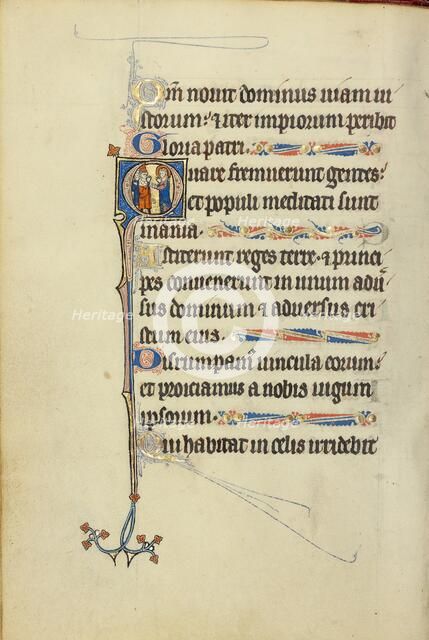 Qm̄ nouit dominus uiam iu
storum · & iter impiorum peribit
Gloria patri ·
Quare fremuerunt gentes ·
et populi meditati sunt
inania ·
Astiterunt reges terre · & princi
pes conuenerunt in unum aduer
sus dominum & aduersus cri
stum eius ·
Disrumpam' uincula eorum ·
et proiciamus a nobis iugum
ipsorum ·
Qui habitat in celis irridebit
Heritage
Heritage
Heritage
Heritage
Heritage